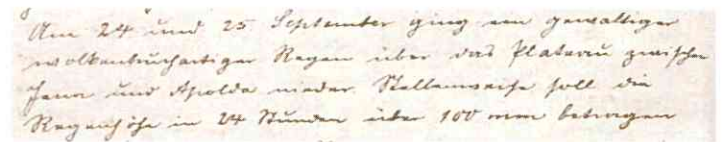 Am 24 und 25 September ging ein gewaltiger
wolkenbruchartiger Regen über das Plateau zwischen
Jena und Apolda nieder. Stellenweise soll die
Regenhöhe in 24 Stunden über 100 mm betragen